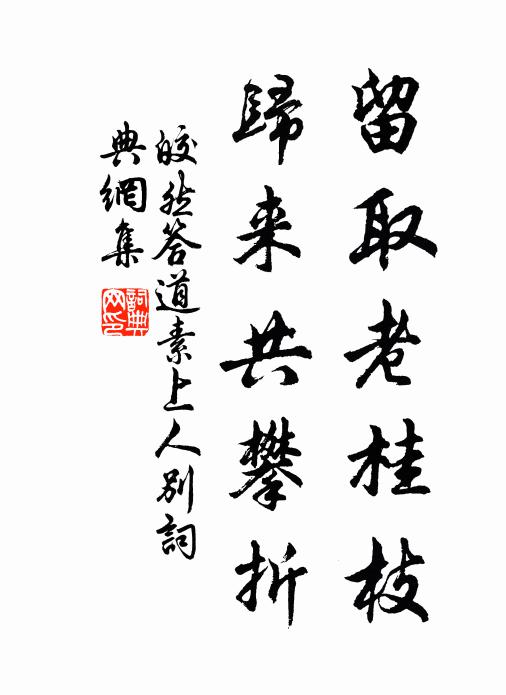 留取老桂枝
歸来共攀折
皎然答道素上人別詞
典網集
詞典網印